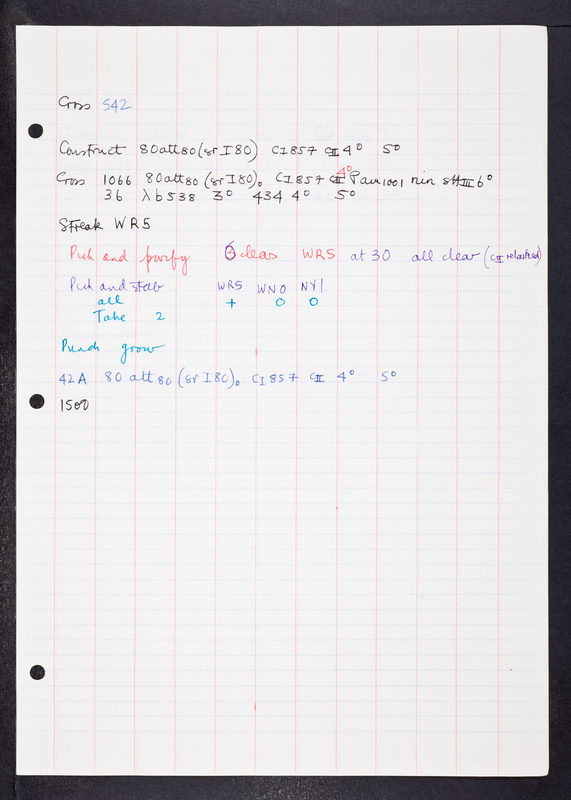 Cross S42
Construct 80att80 (sr I80) CI857 CII 4° 5°
4°
Cross 1066 80att80 (sr I80)o CI857 CII Pam1001 nin sHIII 6°
36 λb538 3° 434 4° 5°
Streak WR5
Pick and purify 6 clear WR5 at 30 all clear (CII related)
Pick and stab WR5 WNO NY1
all + O O
Take 2
Punch grow
42A 80 att80 (sr I80)o CI857 CII 4° 5°
1500